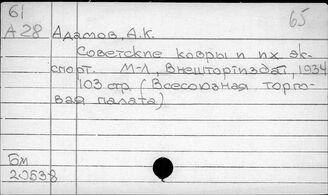 61
65
А28 Адамов, А.К.
Советские ковры и их эк-
спорт. М-Л, Внешторгиздат, 1934
103 стр. (Всесоюзная торго-
вая палата)
Бм
20538